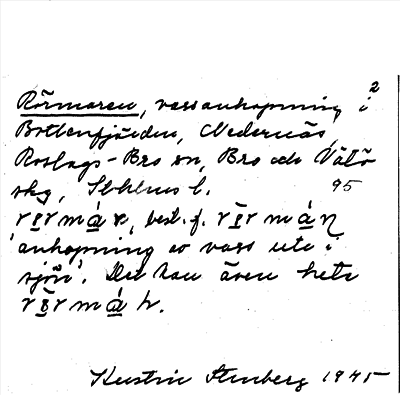 Rörmaren, vassanhopning i 2
Bottenfjärden, Nedernäs,
Roslags-Bro sn, Bro och Vätö
skg, Sthlms l. 95
best. f.
'anhopning av vass ute i
sjön'. Det kan även heta

Kerstin Stenberg 1945